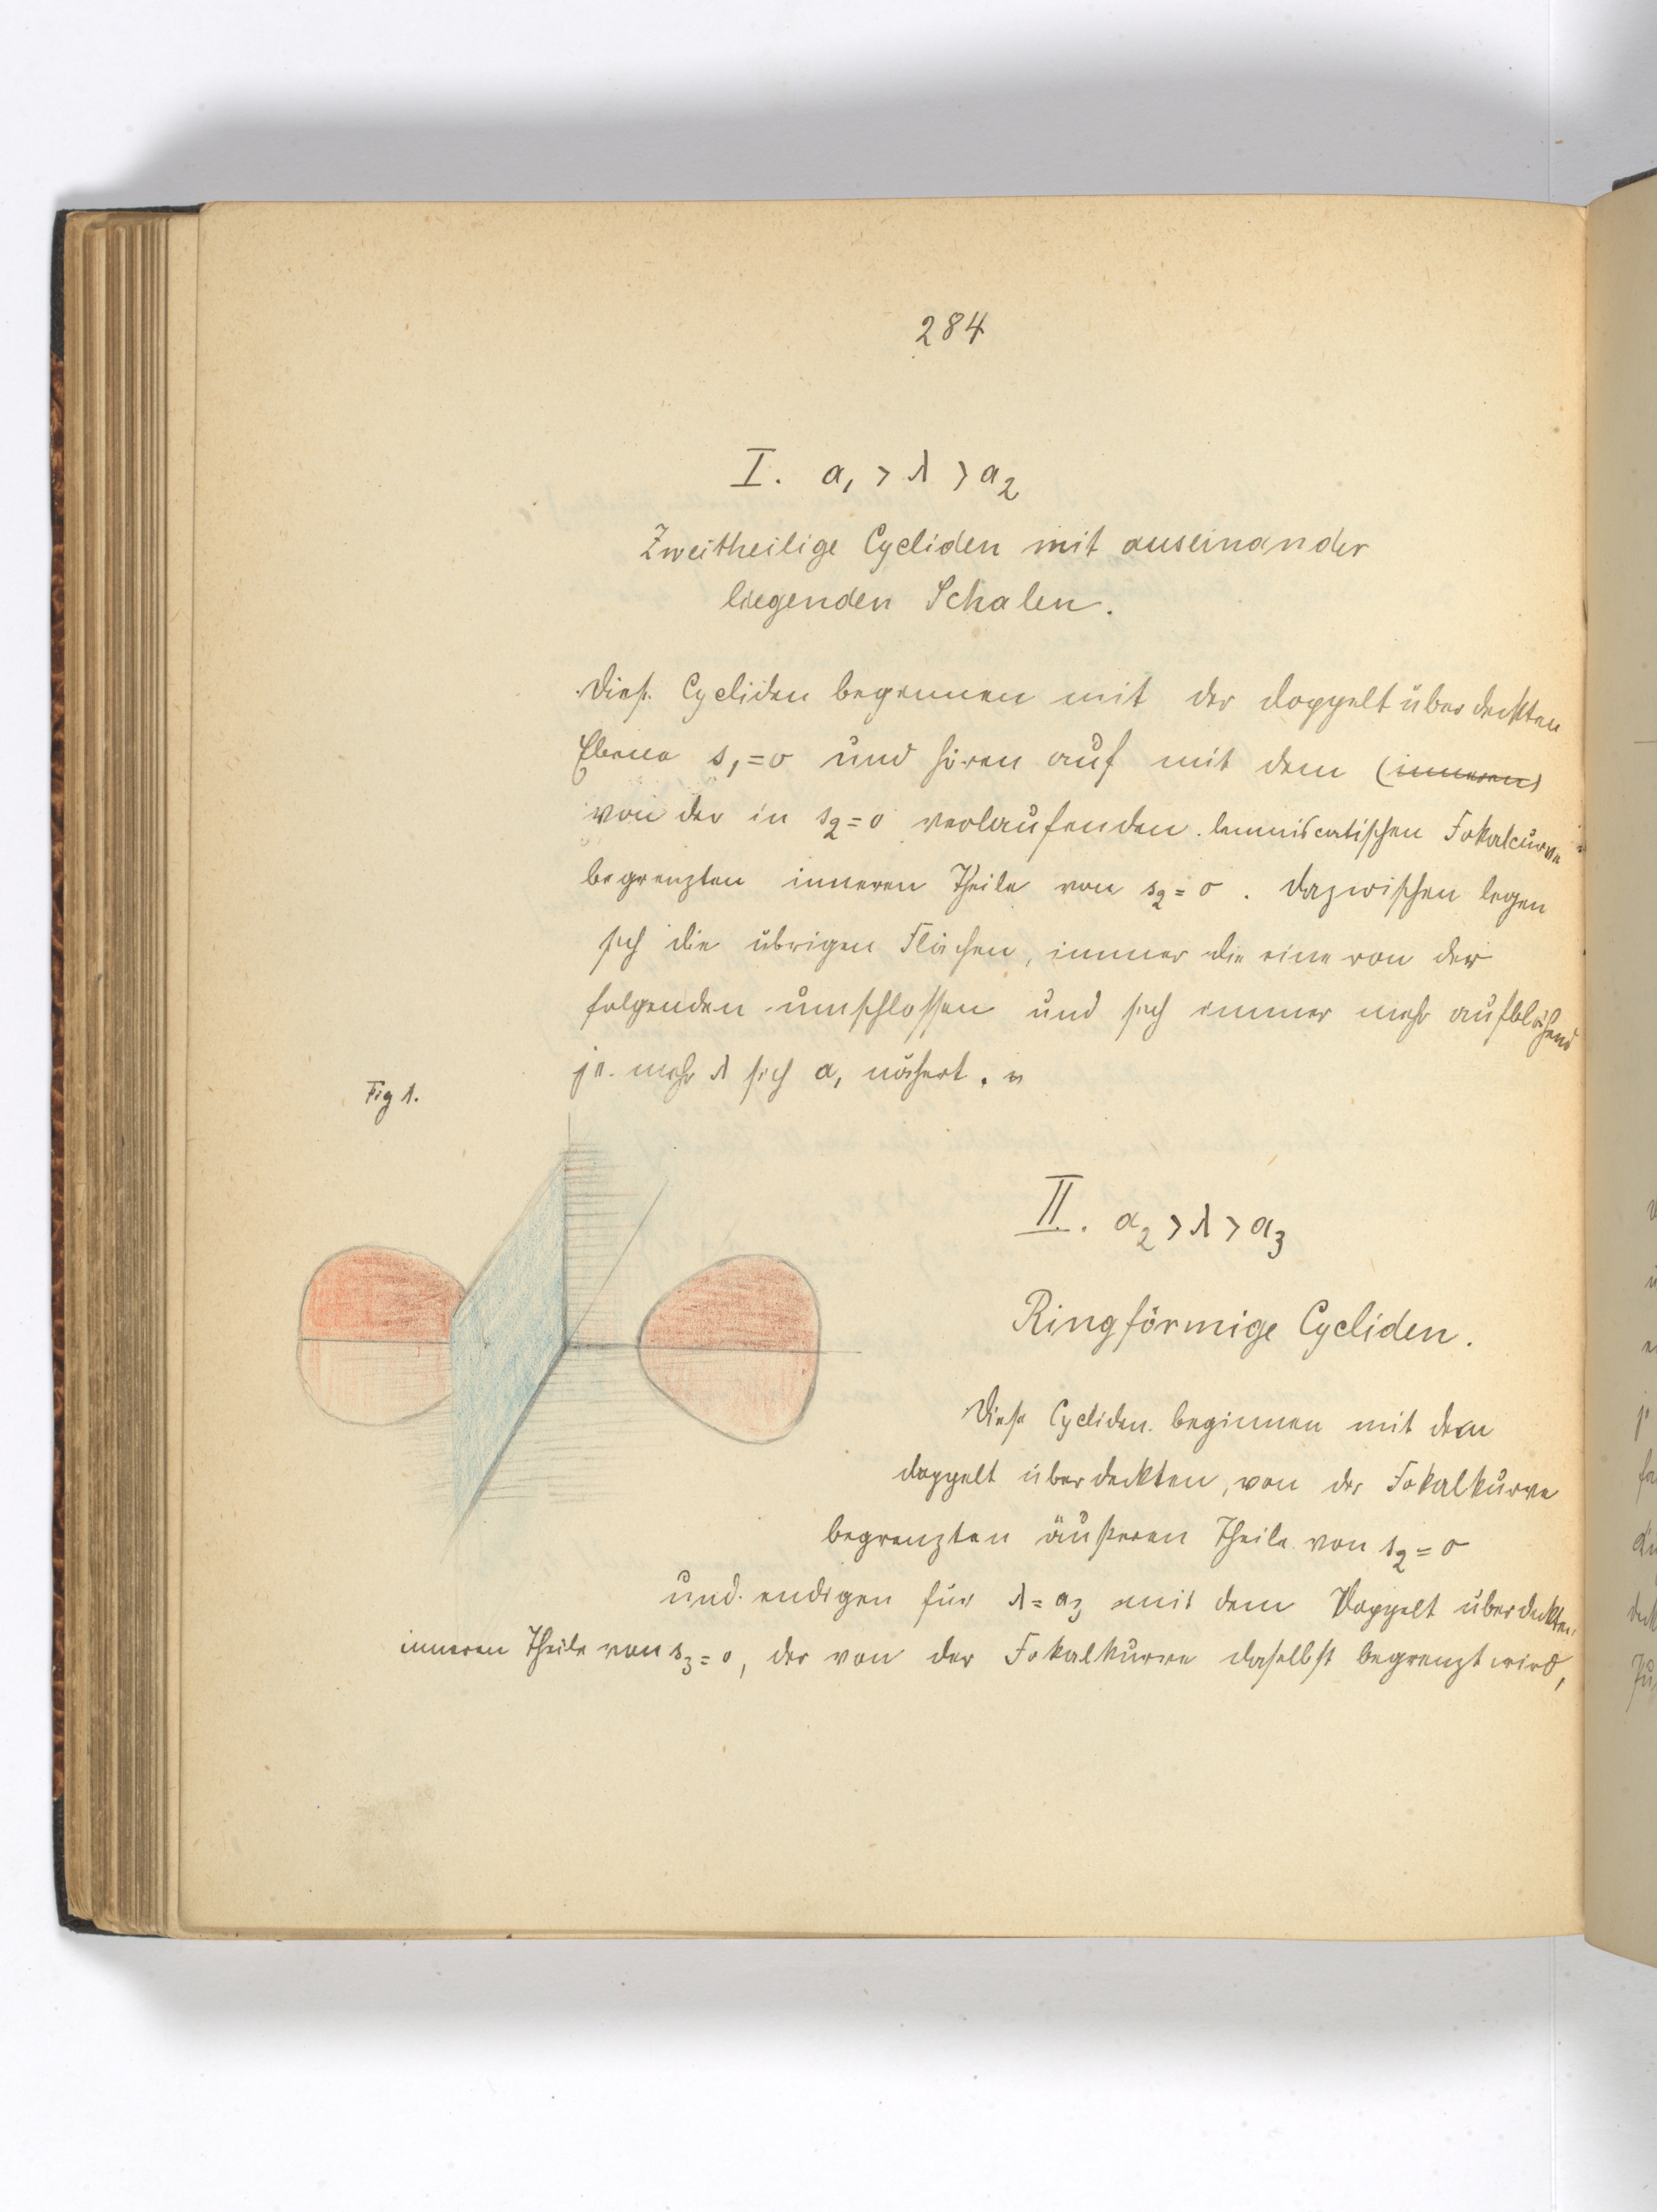 284
I. a₁ > λ > a₂
Zweitheilige Cycliden mit auseinander
liegenden Schalen.
Diese Cycliden beginnen mit der doppelt überdeckten
Ebene s₁ = 0 und hören auf mit dem (inneren)
von der in s₂ = 0 verlaufenden lemniscatischen Fokalcurve
begrenzten inneren Theile von s₂ = 0. Dazwischen legen
sich die übrigen Flächen, immer die eine von der
folgenden umschlossen und sich immer mehr aufblähend
je mehr λ sich a₁ nähert.
Fig 1.
II. a₂ > λ > a₃
Ringförmige Cycliden.
Diese Cycliden beginnen mit dem
doppelt überdeckten, von der Fokalkurve
begrenzten äußeren Theile von s₂ = 0
und endigen für λ = a₃ mit dem Doppelt überdeckten
inneren Theile von s₃ = 0, der von der Fokalkurve daselbst begrenzt wird,